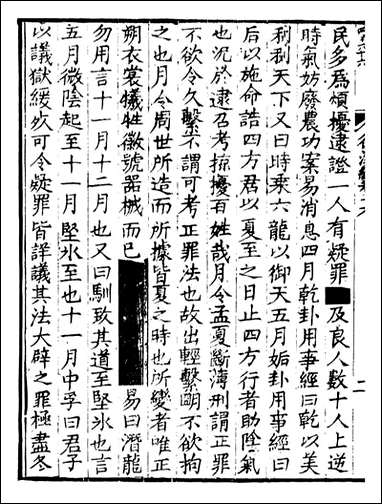 民多為煩擾逮證一人有疑罪及良人數十人上逆
時氣妨廢農功案易消息四月乾卦用事經曰乾以美
利利天下又曰時乗六龍以御天五月姤卦用事經曰
后以施命誥四方君以夏至之日止四方行者助陰氣
也况於逮召考掠擾百姓哉月令孟夏斷薄刑謂正罪
不欲令久繫不謂可考正罪法也故出輕繫明不欲拘
之也月令周世所造而所據皆夏之時也所變者唯正
朔衣裳犧牲徽號器械而已易曰潛龍
勿用言十一月十二月也又曰馴致其道至堅氷也言
五月微陰起至十一月堅氷至也十一月中孚曰君子
以議獄緩死可令疑罪皆詳議其法大辟之罪極盡冬
二